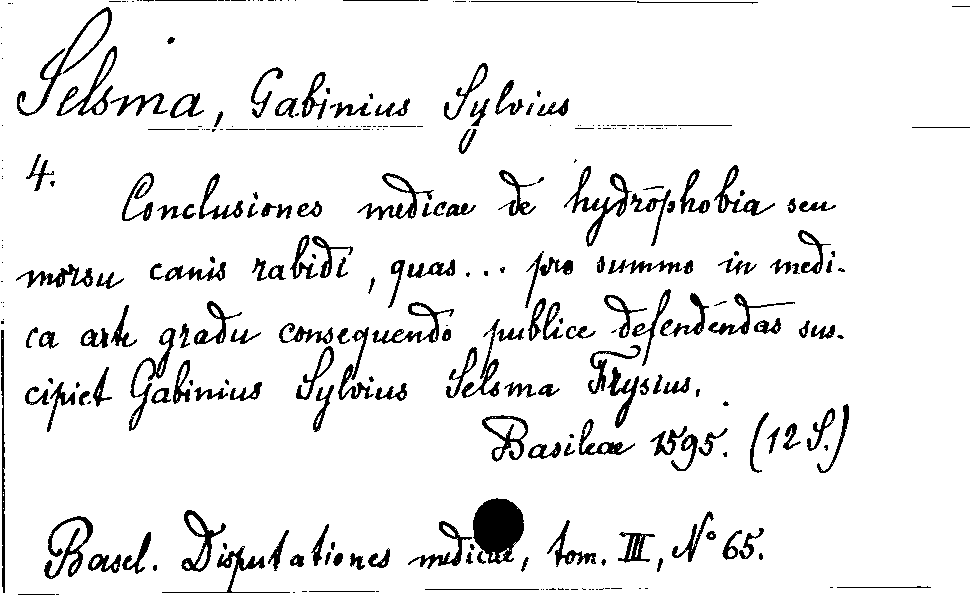 Selsma, Gabinius Sylvius
4.
Conclusiones medicae de hydrophobia seu
morsu canis rabidi, quas... pro summo in medi-
ca arte gradu consequendo publice defendendas sus-
cipiet Gabinius Sylvius Selsma Frysius.
Basileae 1595. (12 S.)
Basel. Disputationes medicae, tom. III, N° 65.